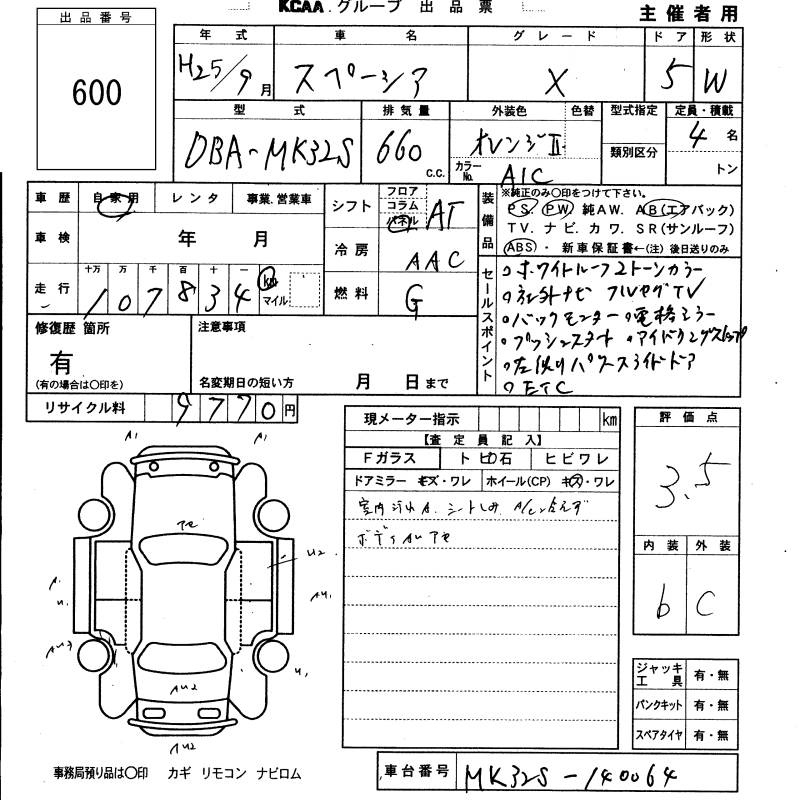 KCAA.グループ 出品票
主催者用
出品番号
600
年式 車名 グレード ドア 形状
H25/9月 スペーシア X 5 W
型式 排気量 外装色 色替 型式指定 定員・積載
DBA-MK32S 660 C.C. オレンジII 4名
カラーNo. A1C 類別区分 トン
車歴 自家用 レンタ 事業.営業車
車検 年 月
走行 十万 万 千 百 十 一
107834 km マイル
シフト フロア コラム パネル AT
冷房 AAC
燃料 G
装備品
※純正のみ○印をつけて下さい。
PS. PW 純AW. AB(エアバック)
TV. ナビ. カワ. SR(サンルーフ)
ABS・ 新車保証書←(注) 後日送りのみ
セールスポイント
○ホワイトルーフ2トーンカラー
○社外ナビ フルセグTV
○バックモニター ○電格ミラー
○プッシュスタート ○アイドリングストップ
○左側パワースライドドア
○ETC
修復歴 箇所
有
(有の場合は○印を)
注意事項
名変期日の短い方 月 日まで
リサイクル料 9770円
現メーター指示 km
【査定員記入】
Fガラス トビ石 ヒビワレ
ドアミラー キズ・ワレ ホイール(CP) キズ・ワレ
室内汚れA. シートしみ.
ボディ
評価点
3.5
内装 外装
b C
ジャッキ工具 有・無
パンクキット 有・無
スペアタイヤ 有・無
A1 A1
U2
A. U.
AU3
AU2
U1
AU2
事務局預り品は○印 カギ リモコン ナビロム
車台番号 MK32S-140064